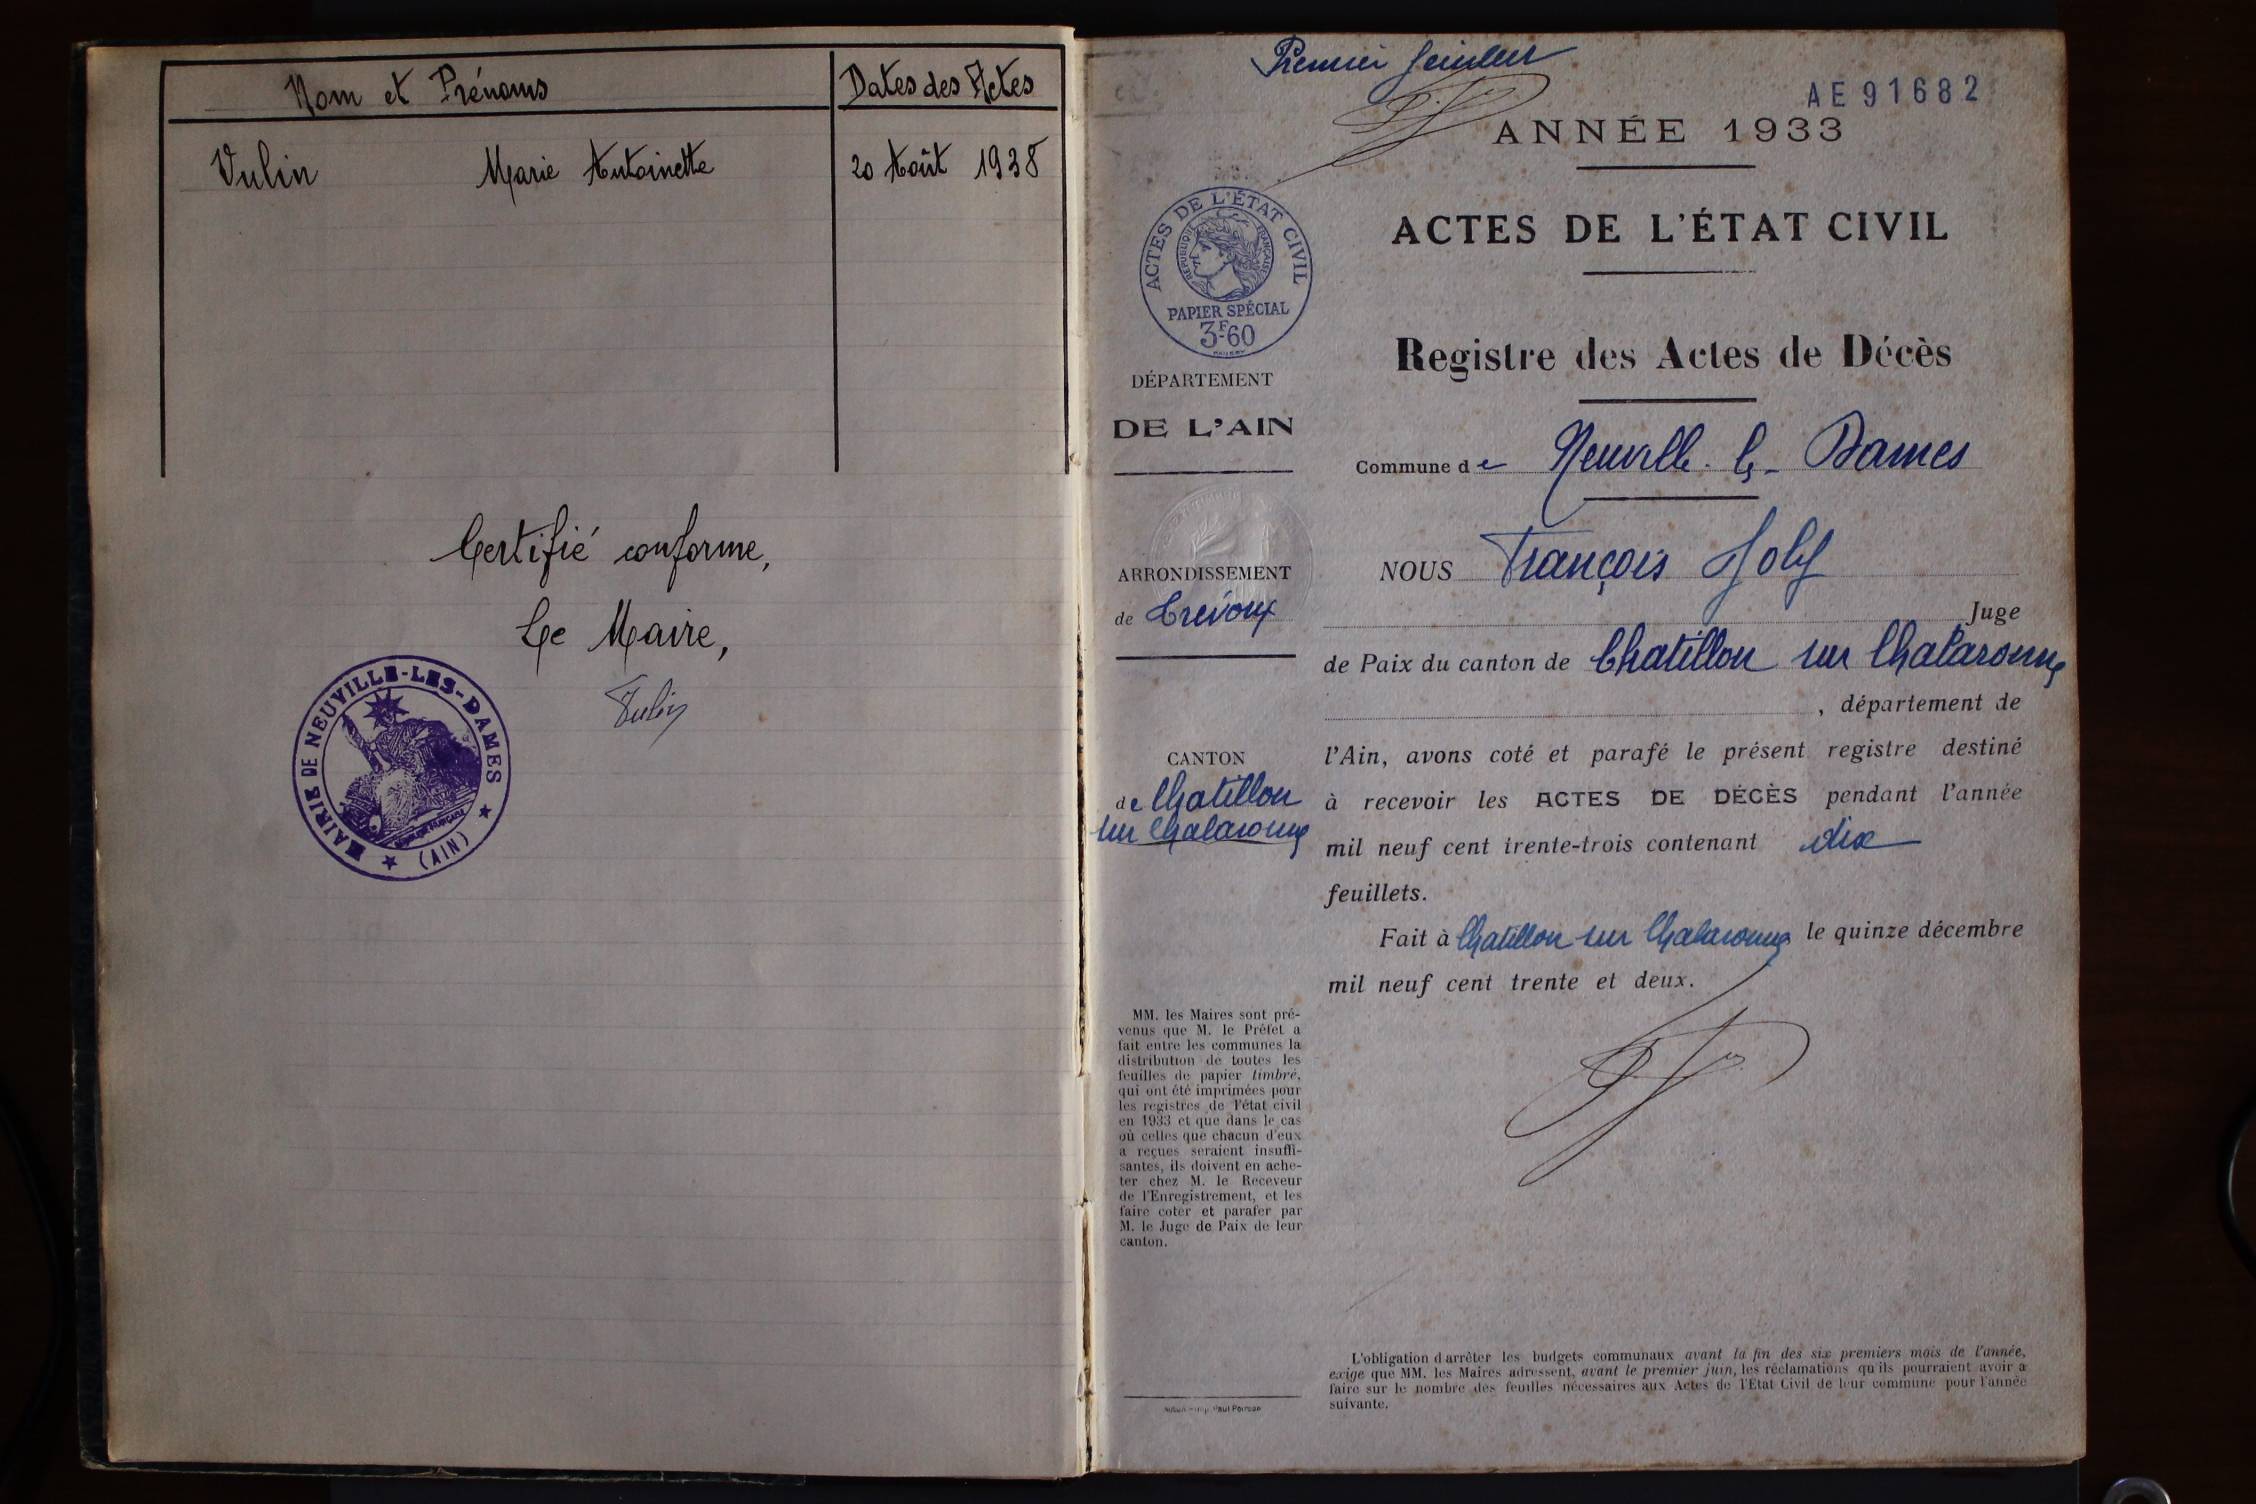 Nom et Prénoms
Dates des Actes
Vulin Marie Antoinette 20 Août 1938
Certifié conforme,
Le Maire,
Vulin
MAIRIE DE NEUVILLE-LES-DAMES
(AIN)
Premier feuillet
AE 91682
ANNÉE 1933
ACTES DE L'ÉTAT CIVIL
RÉPUBLIQUE FRANÇAISE
PAPIER SPÉCIAL
3F60
ACTES DE L'ÉTAT CIVIL
Registre des Actes de Décès
DÉPARTEMENT
DE L'AIN
Commune de Neuville-les-Dames
ARRONDISSEMENT
de Trévoux
CANTON
de Chatillon
sur Chalaronne
NOUS François Joly
Juge
de Paix du canton de Chatillon sur Chalaronne
, département de
l'Ain, avons coté et parafé le présent registre destiné
à recevoir les ACTES DE DÉCÈS pendant l'année
mil neuf cent trente-trois contenant dix
feuillets.
Fait à Chatillon sur Chalaronne le quinze décembre
mil neuf cent trente et deux.
MM. les Maires sont pré-
venus que M. le Préfet a
fait entre les communes la
distribution de toutes les
feuilles de papier timbré,
qui ont été imprimées pour
les registres de l'état civil
en 1933 et que dans le cas
où celles que chacun d'eux
a reçues seraient insuffi-
santes, ils doivent en ache-
ter chez M. le Receveur
de l'Enregistrement, et les
faire coter et parafer par
M. le Juge de Paix de leur
canton.
L'obligation d'arrêter les budgets communaux avant la fin des six premiers mois de l'année,
exige que MM. les Maires adressent, avant le premier juin, les réclamations qu'ils pourraient avoir à
faire sur le nombre des feuilles nécessaires aux Actes de l'Etat Civil de leur commune pour l'année
suivante.